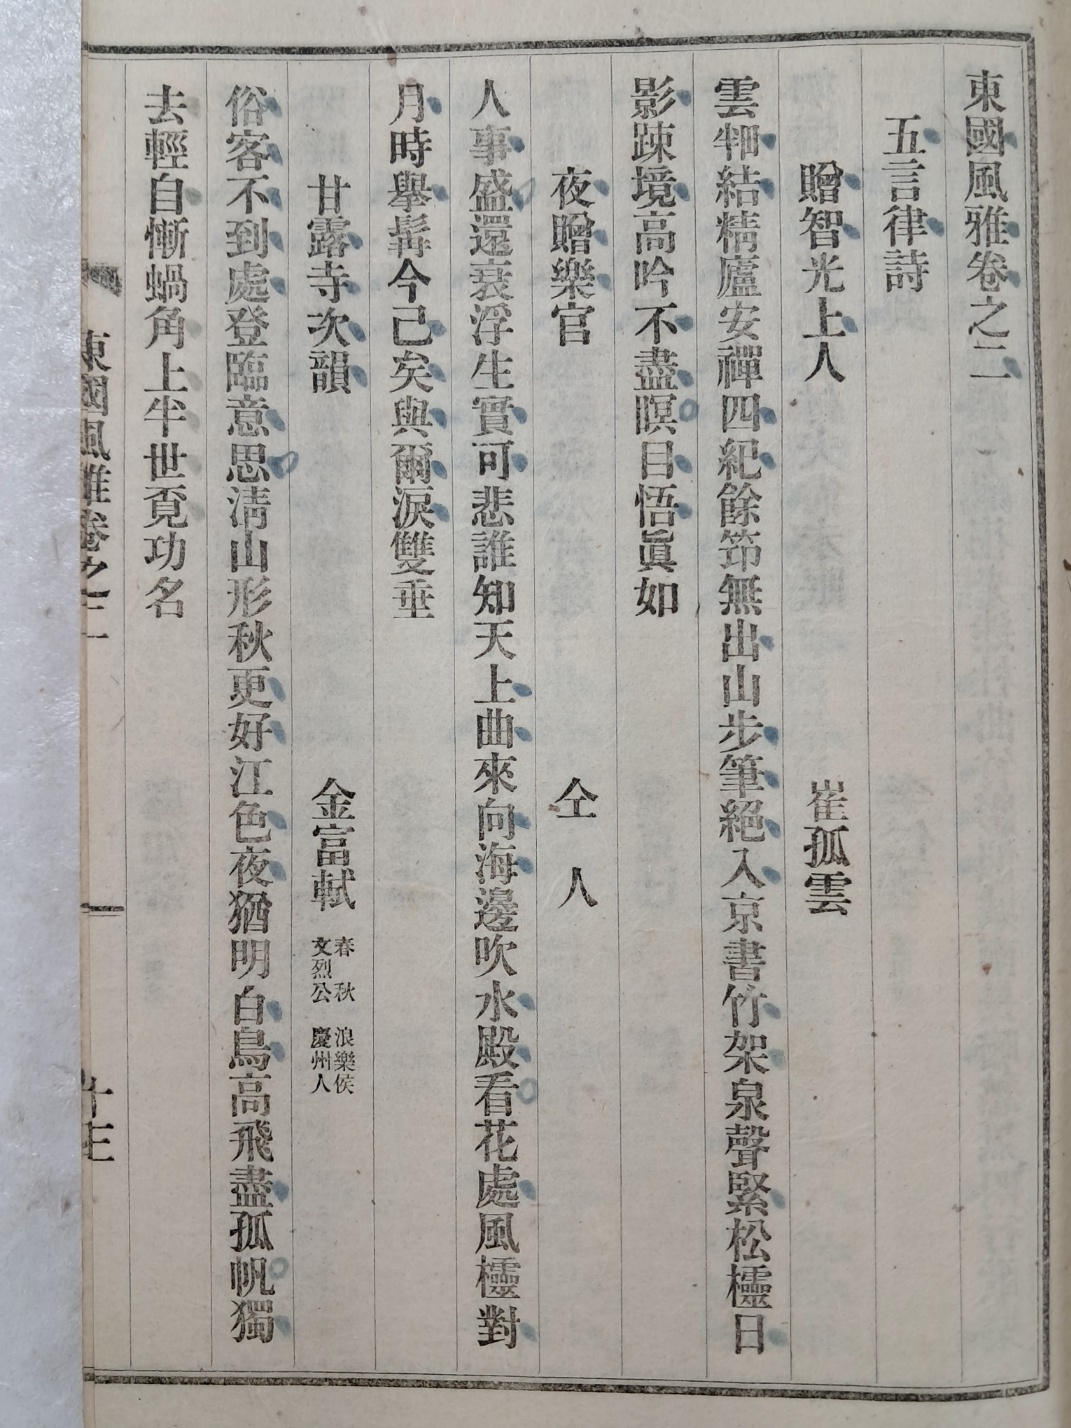 東國風雅卷之二
五言律詩
贈智光上人 崔孤雲
雲畔結精廬安禪四紀餘筇無出山步筆絕入京書竹架泉聲緊松欞日
影踈境高吟不盡瞑目悟眞如
夜贈樂官 仝人
人事盛還衰浮生實可悲誰知天上曲來向海邊吹水殿看花處風欞對
月時擧髯今已矣與爾淚雙垂
甘露寺次韻 金富軾 春秋 浪樂侯
文烈公 慶州人
俗客不到處登臨意思淸山形秋更好江色夜猶明白鳥高飛盡孤帆獨
去輕自慚蝸角上半世覓功名
東國風雅卷之二 一